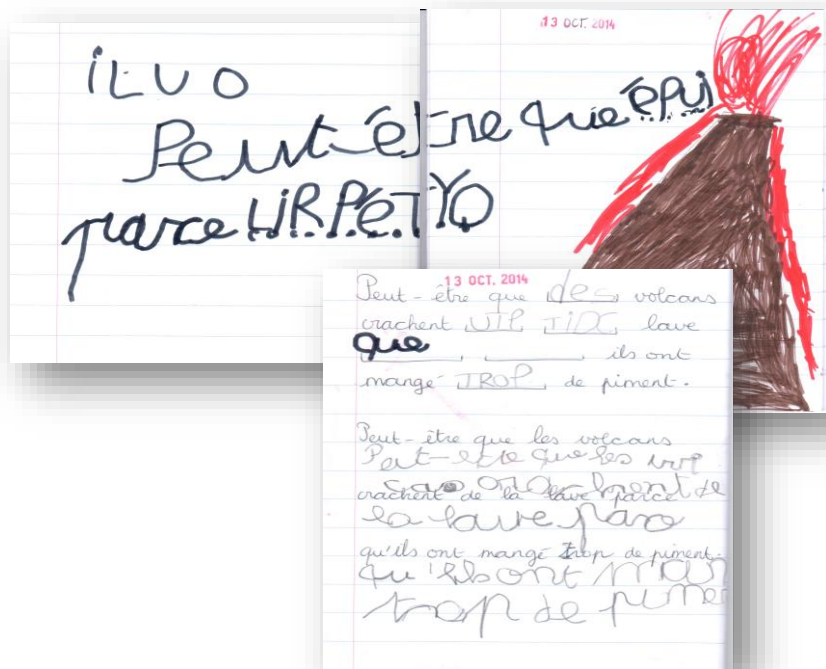 13 OCT. 2014
iLUO
Peut-être que épUi
parce LIRPéTYO
13 OCT. 2014
Peut-être que des volcans
crachent UTP TiDC lave
que ils ont
mangé TROP de piment.
Peut-être que les volcans
Peut-etre que les
crachent de la lave parce
de
la lave parc
qu'ils ont mangé trop de piment.
qu'ils ont man
trop de pime